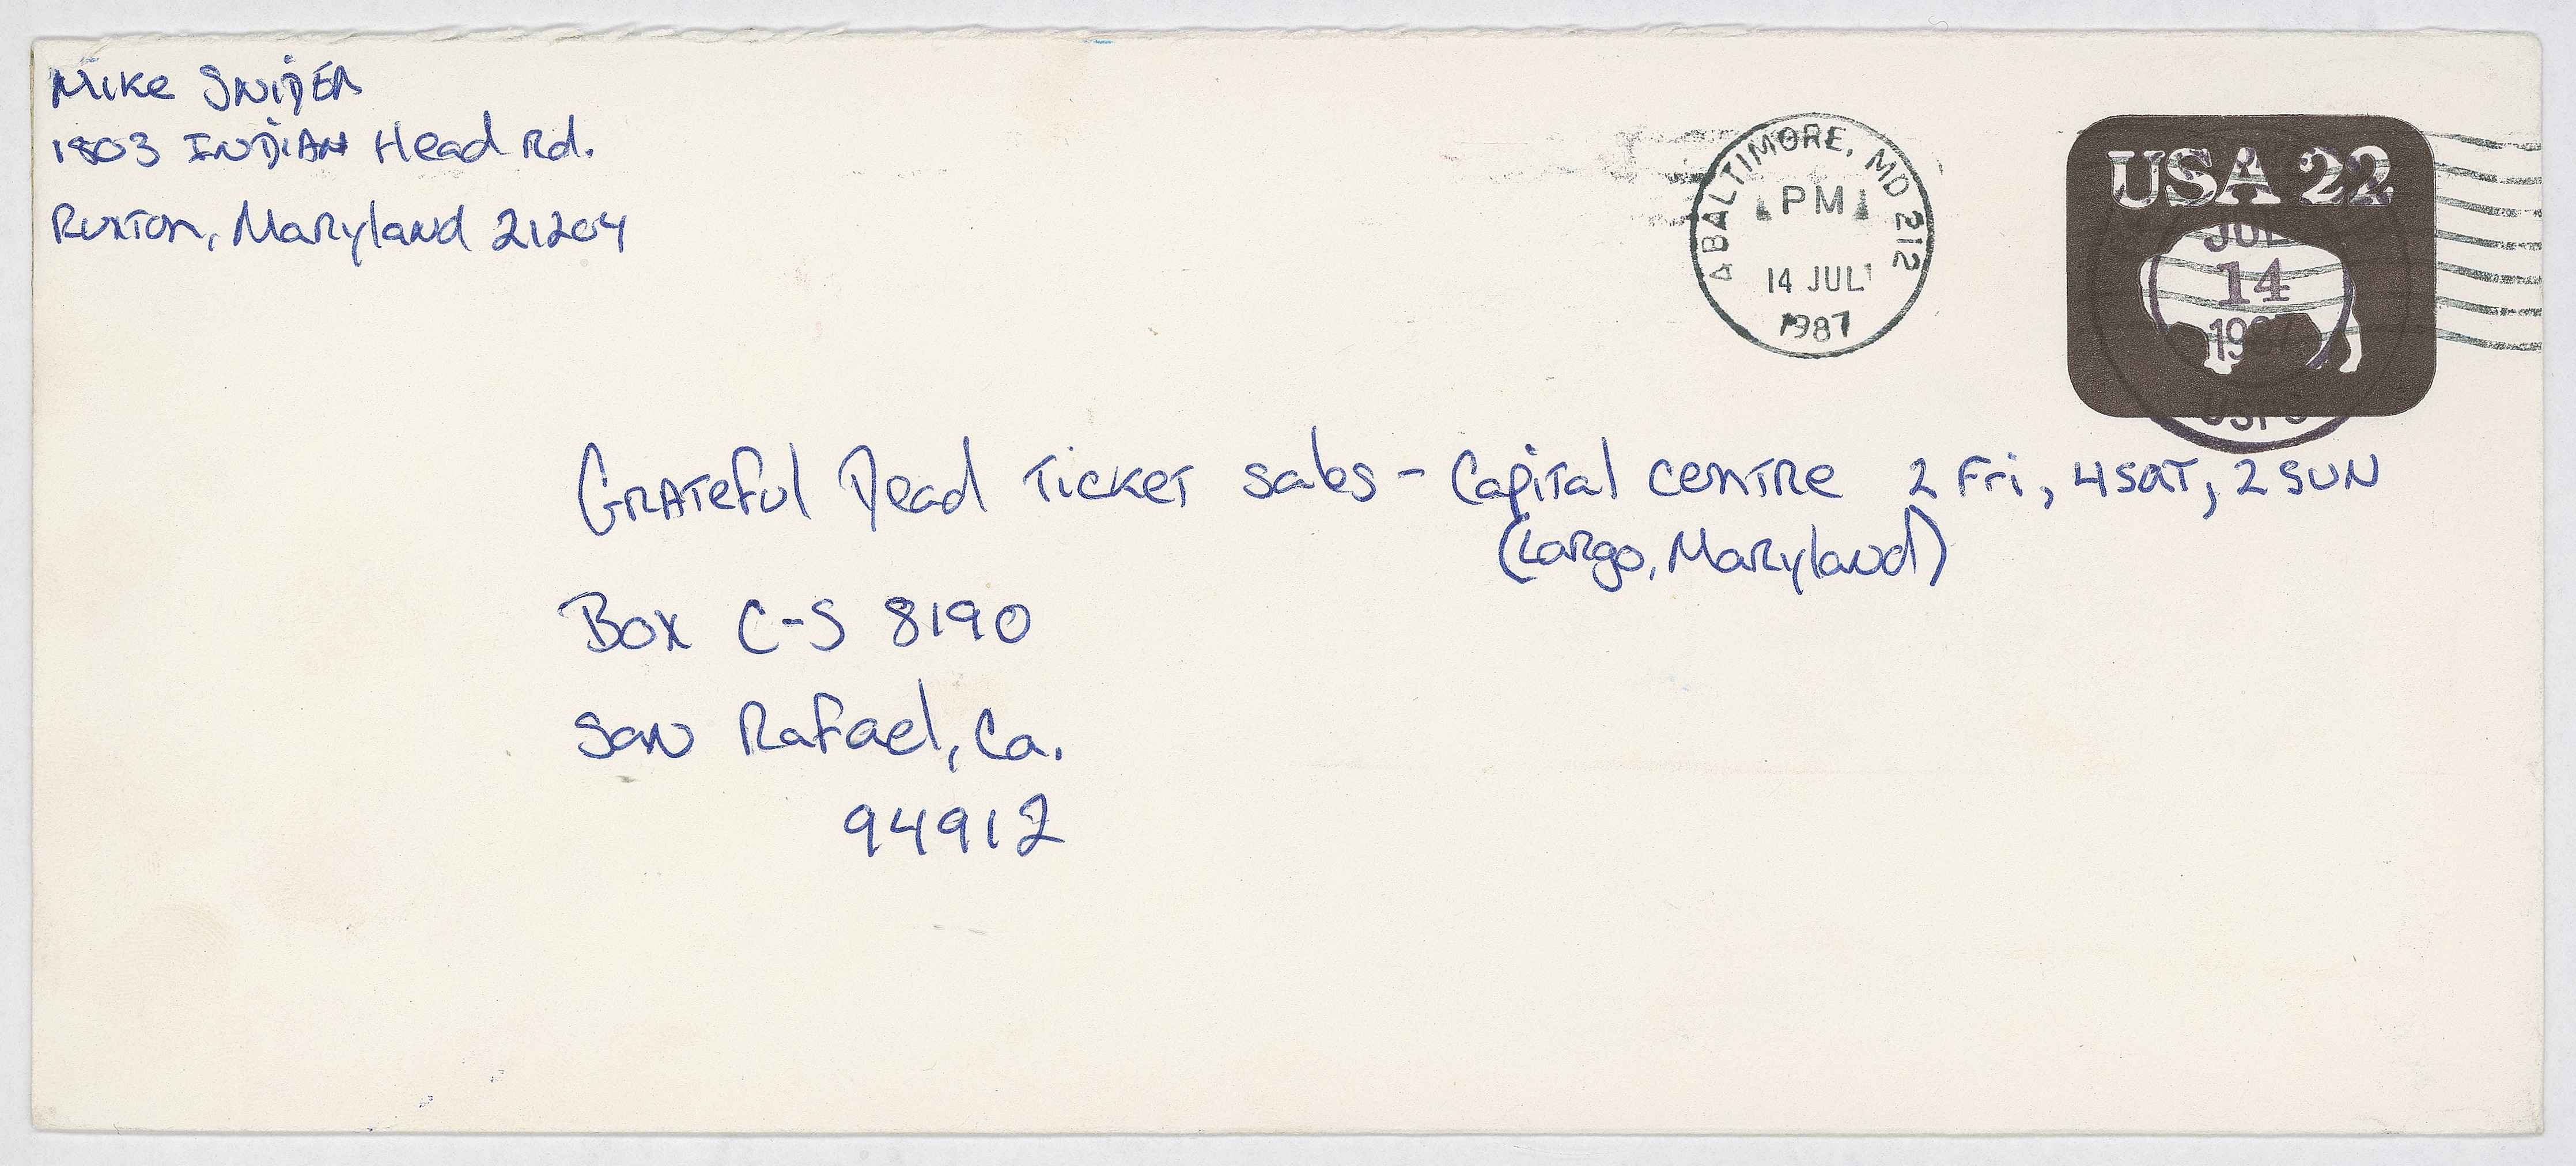 Mike Snider
1803 Indian Head Rd.
Ruxton, Maryland 21204
BALTIMORE, MD 212
PM
14 JUL
1987
USA 22
JUL
14
1987
USPS
Grateful Dead Ticket Sales - Capital Centre 2 Fri, 4 Sat, 2 Sun
(Largo, Maryland)
Box C-S 8190
San Rafael, Ca.
94912